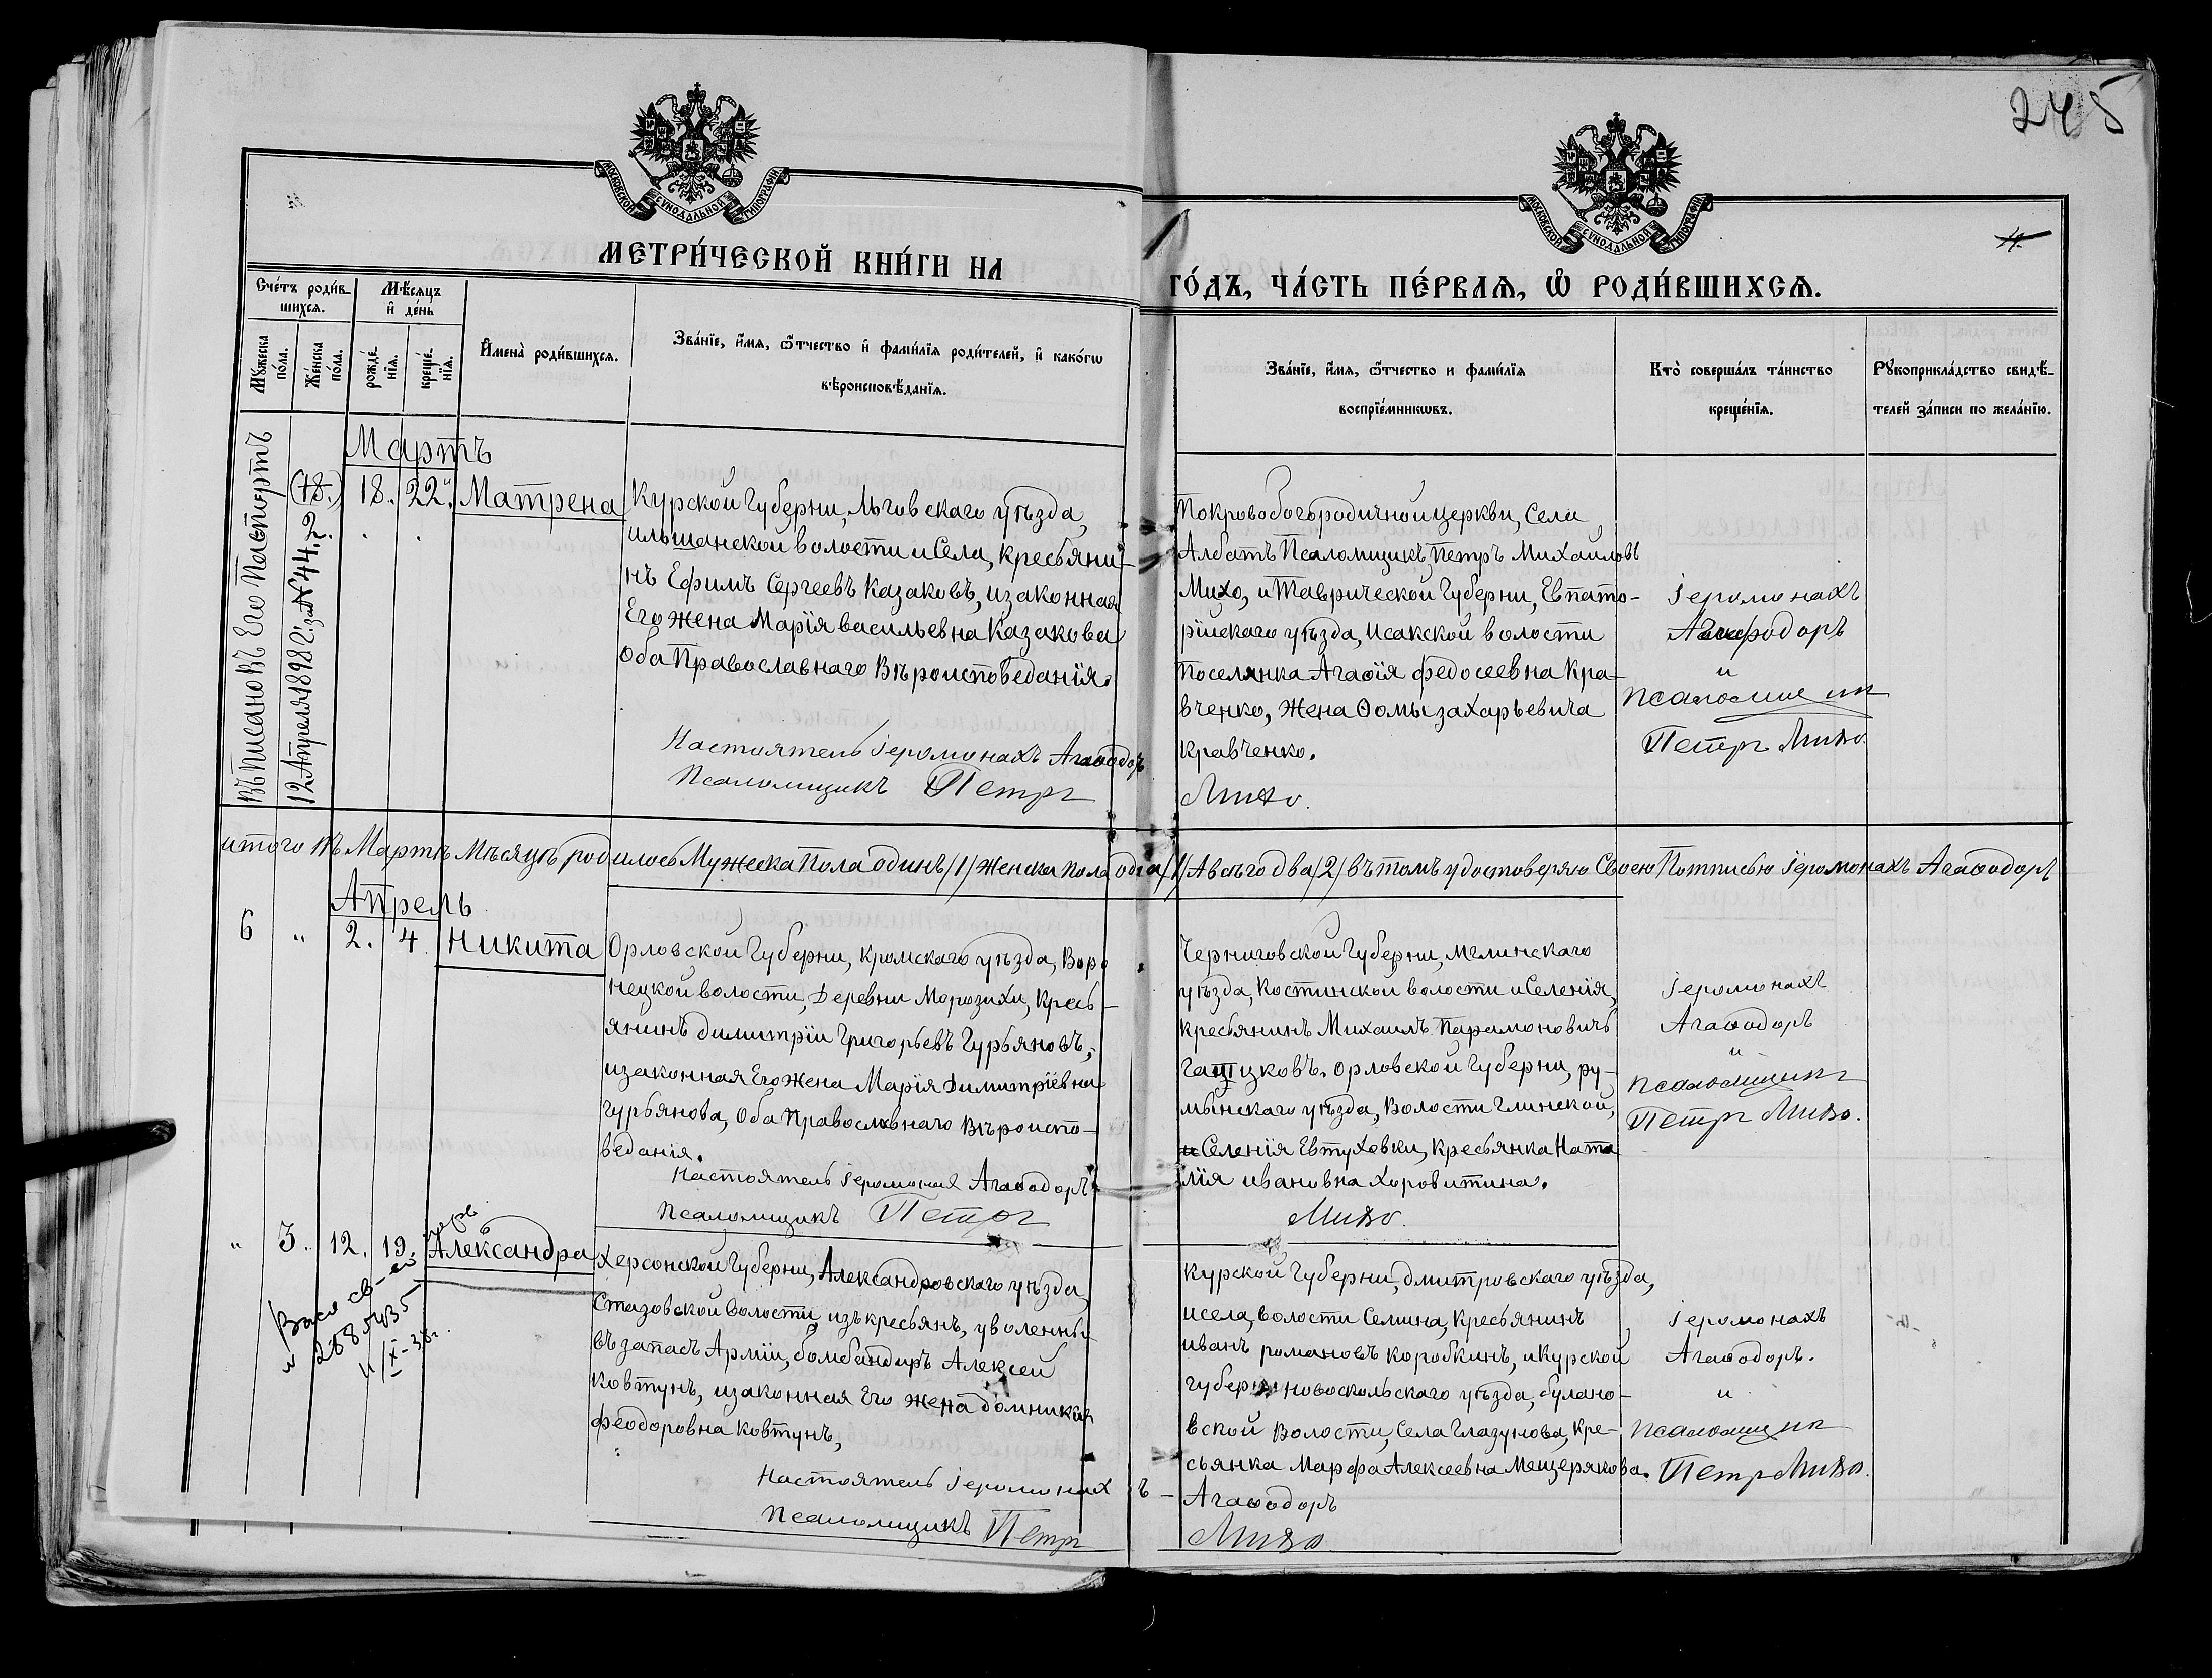 245
МОСКОВСКОЙ СѴНОДАЛЬНОЙ ТИПОГРАФІИ
МОСКОВСКОЙ СѴНОДАЛЬНОЙ ТИПОГРАФІИ
4.
МЕТРИ́ЧЕСКОЙ КНИ́ГИ НА
ГО́ДЪ, ЧА́СТЬ ПЕ́РВАѦ, Ѡ҆ РОДИ́ВШИХСѦ.
Сче́тъ роди́в-
шихсѧ.
Мѣ́сѧцъ
и҆ де́нь
Мꙋ́жеска
по́ла.
Же́нска
по́ла.
рожде́-
нїѧ.
креще́-
нїѧ.
И҆мена̀ роди́вшихсѧ.
Зва́нїе, и҆́мѧ, ѻ҆́тчество и҆ фами́лїѧ роди́телей, и҆ како́гѡ
вѣроисповѣ́данїѧ.
Зва́нїе, и҆́мѧ, ѻ҆́тчество и фами́лїѧ
воспрїе́мникѡвъ.
Кто̀ соверша́лъ та́инство
креще́нїѧ.
Рꙋкоприкла́дство свидѣ́-
телей за́писи по жела́нїю.
Вѣписано въ Его Паспортъ
12 Апреля 1898 г. за № 44.
Мартъ
(18.) 18. 22. Матрена
Курской Губерни, Льговскаго уѣзда,
ильшанской волости и Села, Кресьяни-
нъ Ефимъ Сергеевъ Казаковъ, и законная
Его жена Марія васильевна Казакова
Оба Православнаго Вѣроисповеданія.
Настоятель Іеромонахъ Агаѳодоръ
Псаломщикъ Петръ
Покровобогородичной церкви, Села
Албатъ Псаломщикъ Петръ Михаиловъ
Михо, и Таврической Губерни, Евпато-
рійскаго уѣзда, Исакской волости
Поселянка Агаѳія федосеевна Кра-
вченко, Жена Ѳомы захарьевича
кравченко.
Михо.
Іеромонахъ
Агаѳодоръ
и
псаломщик
Петръ Михо.
итого въ Мартѣ Мѣсяцѣ родилось Мужеска Пола Одинъ /1/ Женска Пола одна /1/ А всего два /2/ въ томъ удостоверяю Своею Потписью Іеромонахъ Агаѳодоръ
Апрель
6 " 2. 4 Никита
Орловской Губерни, Кромскаго уѣзда, Воро
нецкой волости, Деревни Морозихи, Кресь-
янинъ Димитрій Григорьевъ Гурьяновъ,
и законная Его Жена Марія Димитріевна
Гурьянова, Оба Православнаго Вѣроиспо-
веданія.
Настоятель Іеромонах Агаѳодоръ
Псаломщикъ Петръ
Черниговской Губерни, Мглинскаго
уѣзда, Костинской волости и Селенія,
Кресьянинъ Михаилъ Парамоновичъ
Орловской Губерни, ру-
мынскаго уѣзда, Волости Глинской,
и Селенія Евтуховки, Кресьянка Ната
лія ивановна Хоровитина.
Михо.
Іеромонахъ
Агаѳодоръ
и
псаломщикъ
Петръ Михо.
" 3. 12. 19. Александра
св-во
11/X-38г.
Херсонской Губерни, Александровскаго уѣзда,
волости, изъ кресьянъ, уволенный
въ запасъ Арміи, бомбандиръ Алексей
Ковтунъ, и законная Его жена Домникия
Феодоровна Ковтунъ,
Настоятель Іеромонахъ-
Псаломщикъ Петръ
Курской Губерни, Дмитровскаго уѣзда,
и села, волости Семина, Кресьянинъ
иванъ романовъ коробкинъ, и Курской
губерни новоскольскаго уѣзда, булано-
вской Волости, Села Глазунова, Кре-
сьянка Марфа Алексеевна Мещерякова.
Агаѳодоръ
Михо
Іеромонахъ
Агаѳодоръ.
и
псаломщик
Петръ Михо.